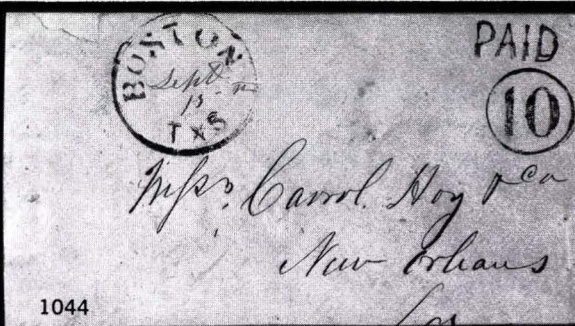 BOSTON
Sept
13
TXS
PAID
10
Messrs. Carrol. Hoy & Co
New Orleans
La
1044